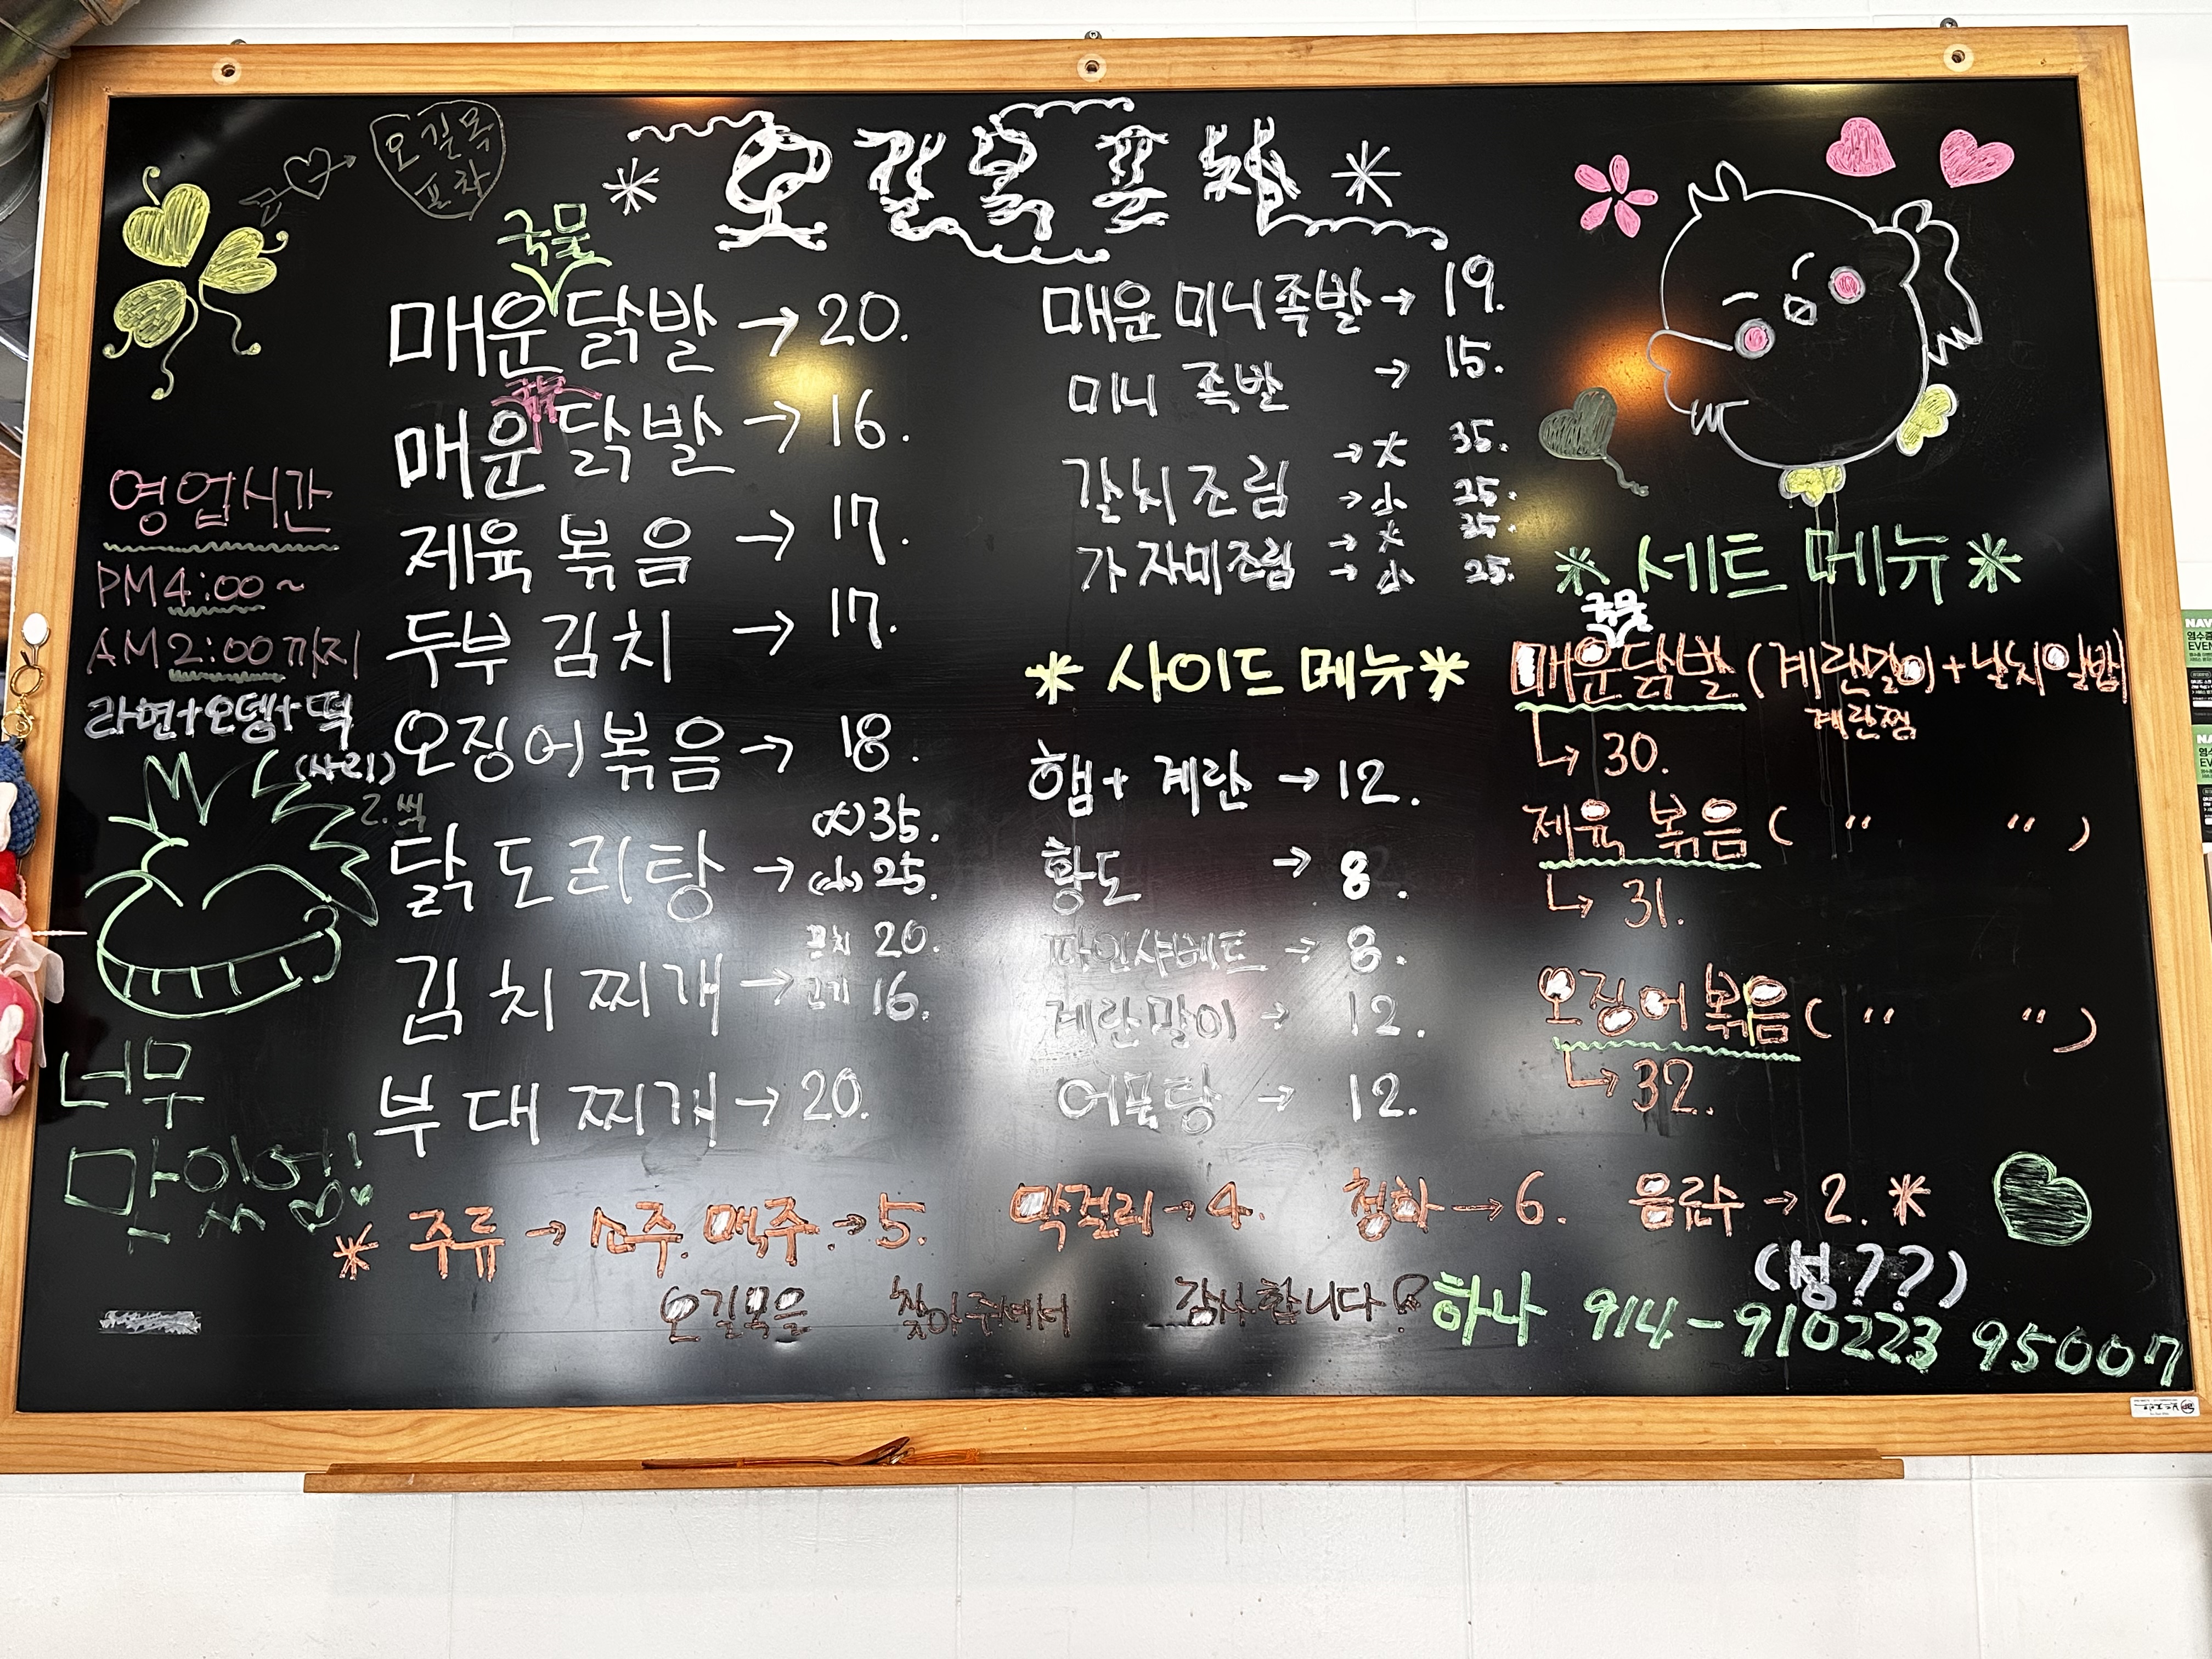 오길목
포차
* 오길목포차 *
국물
매운닭발 → 20.
매운닭발 → 16.
제육볶음 → 17.
두부 김치 → 17.
오징어볶음 → 18.
닭도리탕 → (大) 35.
(小) 25.
김치찌개 → 꽁치 20.
고기 16.
부대찌개 → 20.
매운 미니족발 → 19.
미니 족발 → 15.
갈치조림 → 大 35.
→ 小 25.
가자미조림 → 大 35.
→ 小 25.
* 사이드 메뉴 *
햄 + 계란 → 12.
황도 → 8.
파인샤베트 → 8.
계란말이 → 12.
어묵탕 → 12.
* 세트 메뉴 *
국물
매운닭발 (계란말이 + 날치알밥)
계란찜
↳ 30.
제육 볶음 ( " " )
↳ 31.
오징어 볶음 ( " " )
↳ 32.
영업시간
PM 4:00 ~
AM 2:00 까지
라면+오뎅+떡
(사리)
2.씩
너무
맛있어!!
* 주류 → 소주. 맥주. → 5. 막걸리 → 4. 청하 → 6. 음료수 → 2. *
오길목을 찾아주셔서 감사합니다
하나 914-910223 95007